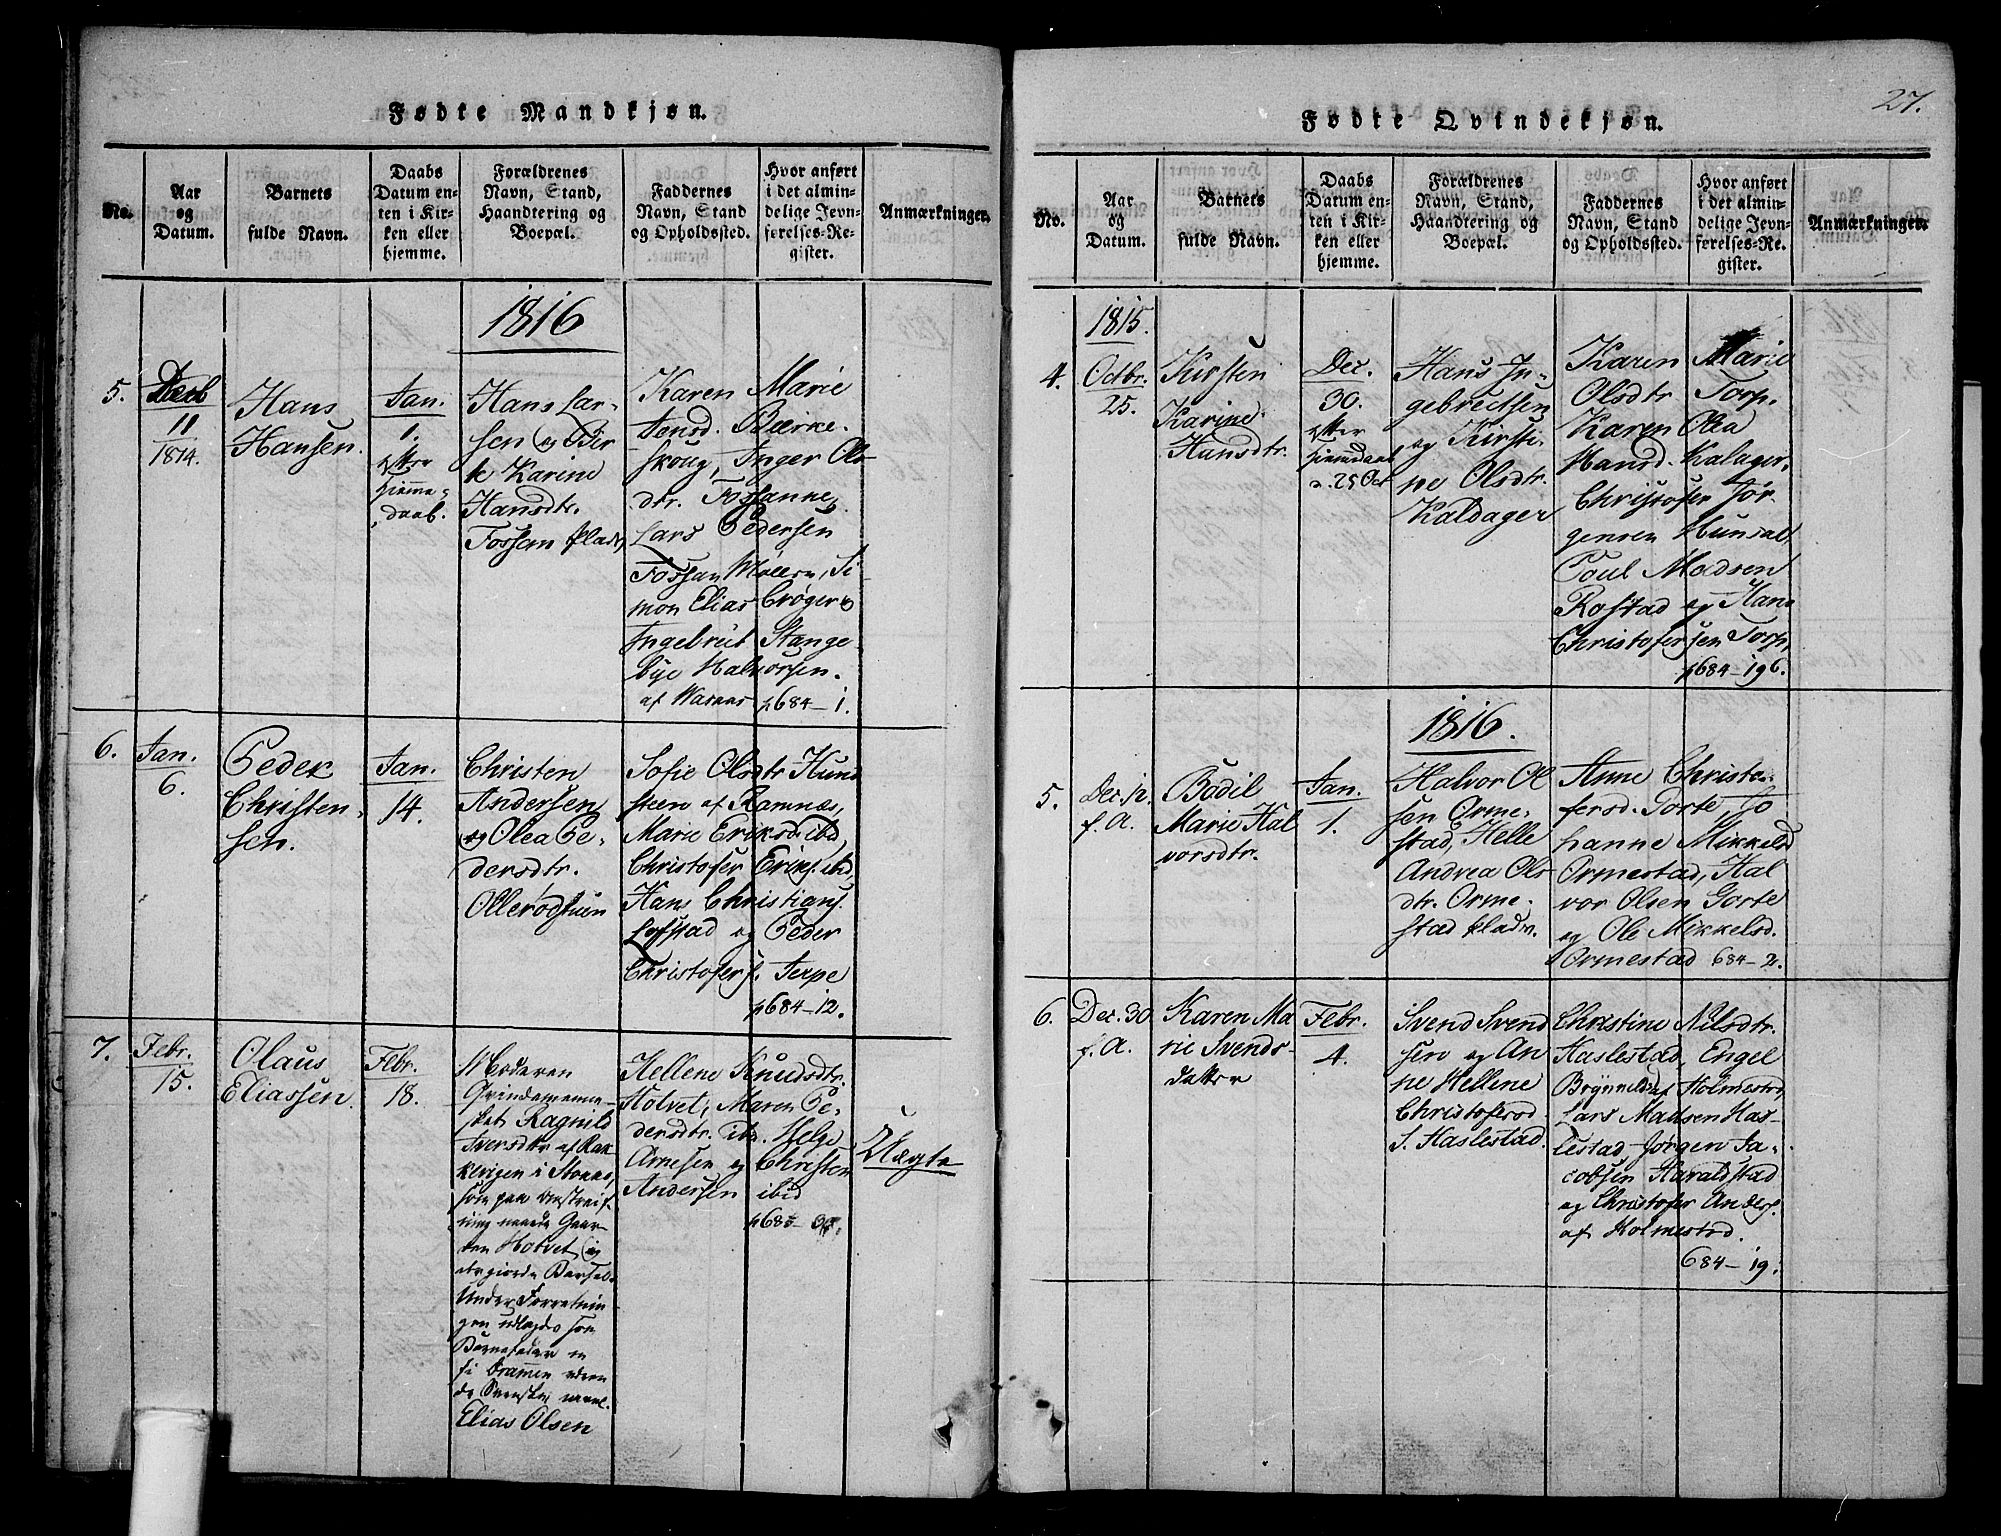 Fødte Mandkjøn.
No.
Aar
og
Datum.
Barnets
fulde Navn.
Daabs
Datum en-
ten i Kir-
ken eller
hjemme.
Forældrenes
Navn, Stand,
Haandtering og
Boepæl.
Faddernes
Navn, Stand
og Opholdssted.
Hvor anført
i det almin-
delige Jevn-
førelses-Re-
gister.
Anmærkninger.
1816
5.
Decb
11
1814.
Hans
Hansen.
Jan.
1.
efter
hjemme-
daab.
Hans Lar-
sen og Bir
te Karine
Hansdtr.
Fossan plads
Karen Marie
Jensd. Bærke-
skoug, Inger Ols
dtr. Fossanne,
Lars Pedersen
Fossan Møllen, Si-
mon Elias Crøger og
Ingebreit Stange-
bye Halvorsen.
af Waraas p684-1.
6.
Jan.
6.
Peder
Christen-
sen.
Jan.
14.
Christen
Andersen
og Olea Pe-
dersdtr.
Ollerødstuen
Sofie Olsdtr Hund
steen af Ramnæs,
Marie Eriksd. ibd,
Christofer Eriks. ibd,
Hans Christians.
Lofstad og Peder
Christofers. Terpe
p684-12.
7.
Febr.
15.
Olaus
Eliassen.
Febr.
18.
Moderen
Qvindemenne-
sket Ragnild
Iversdtr af
som paa
ning naaede Gaar-
den Hotvet, og
der giorde Barsel.
Under Forretnin
gen udlagdes som
Barnefader en
fra Dramen
de Svenske,
Elias Olsen
Hellene Knudsdtr.
Hotvet, Maren Pe-
dersdtr. ibd. Helge
Arnesen og Christen
Andersen ibid
Uægte
27.
Fødte Qvindekjøn.
No.
Aar
og
Datum.
Barnets
fulde Navn.
Daabs
Datum en-
ten i Kir-
ken eller
hjemme.
Forældrenes
Navn, Stand,
Haandtering og
Boepæl.
Faddernes
Navn, Stand
og Opholdssted.
Hvor anført
i det almin-
delige Jevn-
førelses-Re-
gister.
Anmærkninger.
1815.
4.
Octbr.
25.
Kirsten
Karine
Hansdtr.
Dec.
30.
efter
hjemdaab
d. 25 Oct
Hans In-
gebreitsen
og Kirsti-
ne Olsdtr.
Kaldager
Karen Marie
Olsdtr Torp.
Karen Olea
Hansd. Kalager,
Christofer Jør
gensen Hunsal,
Poul Madsen
Rostad og Hans
Christofersen Torp,
p684-196.
1816.
5.
Dec. 12.
f. A.
Bodil
Marie Hal
vorsdtr.
Jan.
1.
Halvor Ol
sen Orme-
stad, Helle
Andrea Ols
dtr. Orme-
stad pladn.
Anne Christo-
fersd. Gorte, Jo
hanne Mikkelsd
Ormestad, Hal
vor Olsen Gorte
og Ole Mikkelsd.
Ormestad 684-2.
6.
Dec. 30
f. A.
Karen Ma
rie Svends-
datter
Febr.
4.
Svend Svend
sen og An
ne Hellene
Christofersd.
S. Haslestad.
Christine Nilsdtr.
Haslestad, Engel
Brynnildsd Holmestad,
Lars Madsen Has-
lestad Jørgen Ja-
cobsen Haraldstad
og Christofer Anders.
af Holmestad.
684-19.